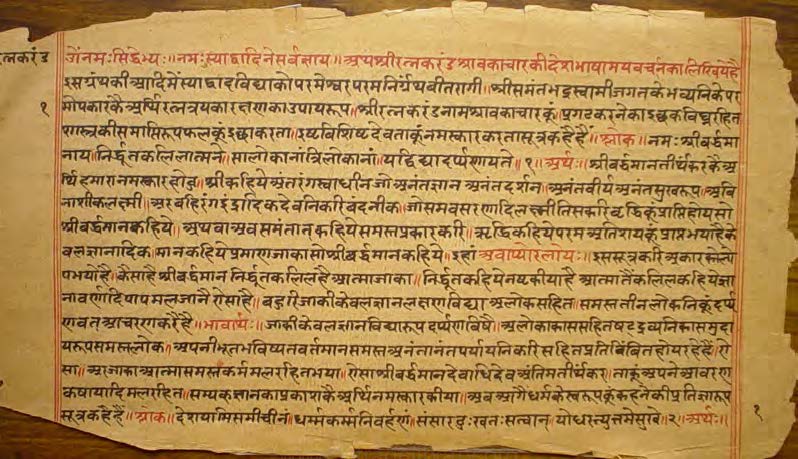 त्नकरंड
१
ॐनमःसिद्धेभ्यः॥नमःस्याद्वादिनेसर्वज्ञाय॥अथश्रीरत्नकरंडश्रावकाचारकीदेशभाषामयवचनकालिखियेहै
इसग्रंथकीआदिमेंस्याद्वादविद्याकोपरमेश्वरपरमनिर्ग्रंथवीतरागी॥श्रीसमंतभद्रस्वामीजगतकेभव्यनिकेपर
मोपकारकेअर्थिरत्नत्रयकारक्षणकाउपायरूप॥श्रीरत्नकरंडनामश्रावकाचारकूं॥प्रगटकरनेकाइच्छकविघ्नरहित
शास्त्रकीसमाप्तिरूपफलकूंइच्छाकरता॥इष्टविशिष्टदेवताकूंनमस्कारकरतासूत्रकहैहैं॥श्लोक॥नमःश्रीवर्द्धमा
नाय॥निर्द्धूतकलिलात्मने॥सालोकानांत्रिलोकानां॥यद्विद्यादर्प्पणायते॥१॥अर्थः॥श्रीवर्द्धमानतीर्थकरकैअ
र्थिहमारानमस्कारहोहु॥श्रीकहियेअंतरंगस्वाधीनजोअनंतज्ञानअनंतदर्शन॥अनंतवीर्यअनंतसुखरूप॥अवि
नाशीकलक्ष्मी॥अरबहिरंगइंद्रादिकदेवनिकरिवंदनीक॥जोसमवसरणादिलक्ष्मीतिसकरिवृद्धिकूंप्राप्तिहोयसो
श्रीवर्द्धमानकहिये॥अथवाअवसमंतात्कहियेसमस्तप्रकारकरि॥ऋद्धिकहियेपरमअतिशयकूंप्राप्तभयाहैके
वलज्ञानादिकमानकहियेप्रमाणजाकासोश्रीवर्द्धमानकहिये॥इहांअवाप्योरलोपः॥इससूत्रकरिअकारकालो
पभयोहै॥कैसाहैश्रीवर्द्धमाननिर्द्धूतकलिलहैआत्माजाका॥निर्द्धूतकहियेनष्टकीयाहैआत्मातैंकलिलकहियेज्ञा
नावर्णादिपापमलजानैऐसाहै॥बहुरिजाकीकेवलज्ञानलक्षणविद्याअलोकसहित॥समस्ततीनलोकनिकूंदर्प्प
णवत्आचरणकरैहै॥भावार्थः॥जाकीकेवलज्ञानविद्यारूपदर्प्पणबिषै॥अलोकाकाससहितषटद्रव्यनिकासमुदा
यरूपसमस्तलोक॥अपनीभूतभविष्यतवर्तमानसमस्तअनंतानंतपर्यायनिकरिसहितप्रतिबिंबितहोयरहेहैं॥ऐ
सा॥अरजाकाआत्मासमस्तकर्ममलरहितभया॥ऐसाश्रीवर्द्धमानदेवाधिदेवअंतिमतीर्थंकर॥ताकूंअपनेआवरण
कषायादिमलरहित॥सम्यकज्ञानकाप्रकाशकैअर्थिनमस्कारकीया॥अबआगैंधर्मकेस्वरूपकूंकहनेकीप्रतिज्ञारूप
सूत्रकहैहैं॥श्लोक॥देशयामिसमीचीनं॥धर्म्मकर्म्मनिवर्हणं॥संसारदुःखतःसत्वान्॥योधरत्युत्तमेसुखे॥२॥अर्थः॥
१